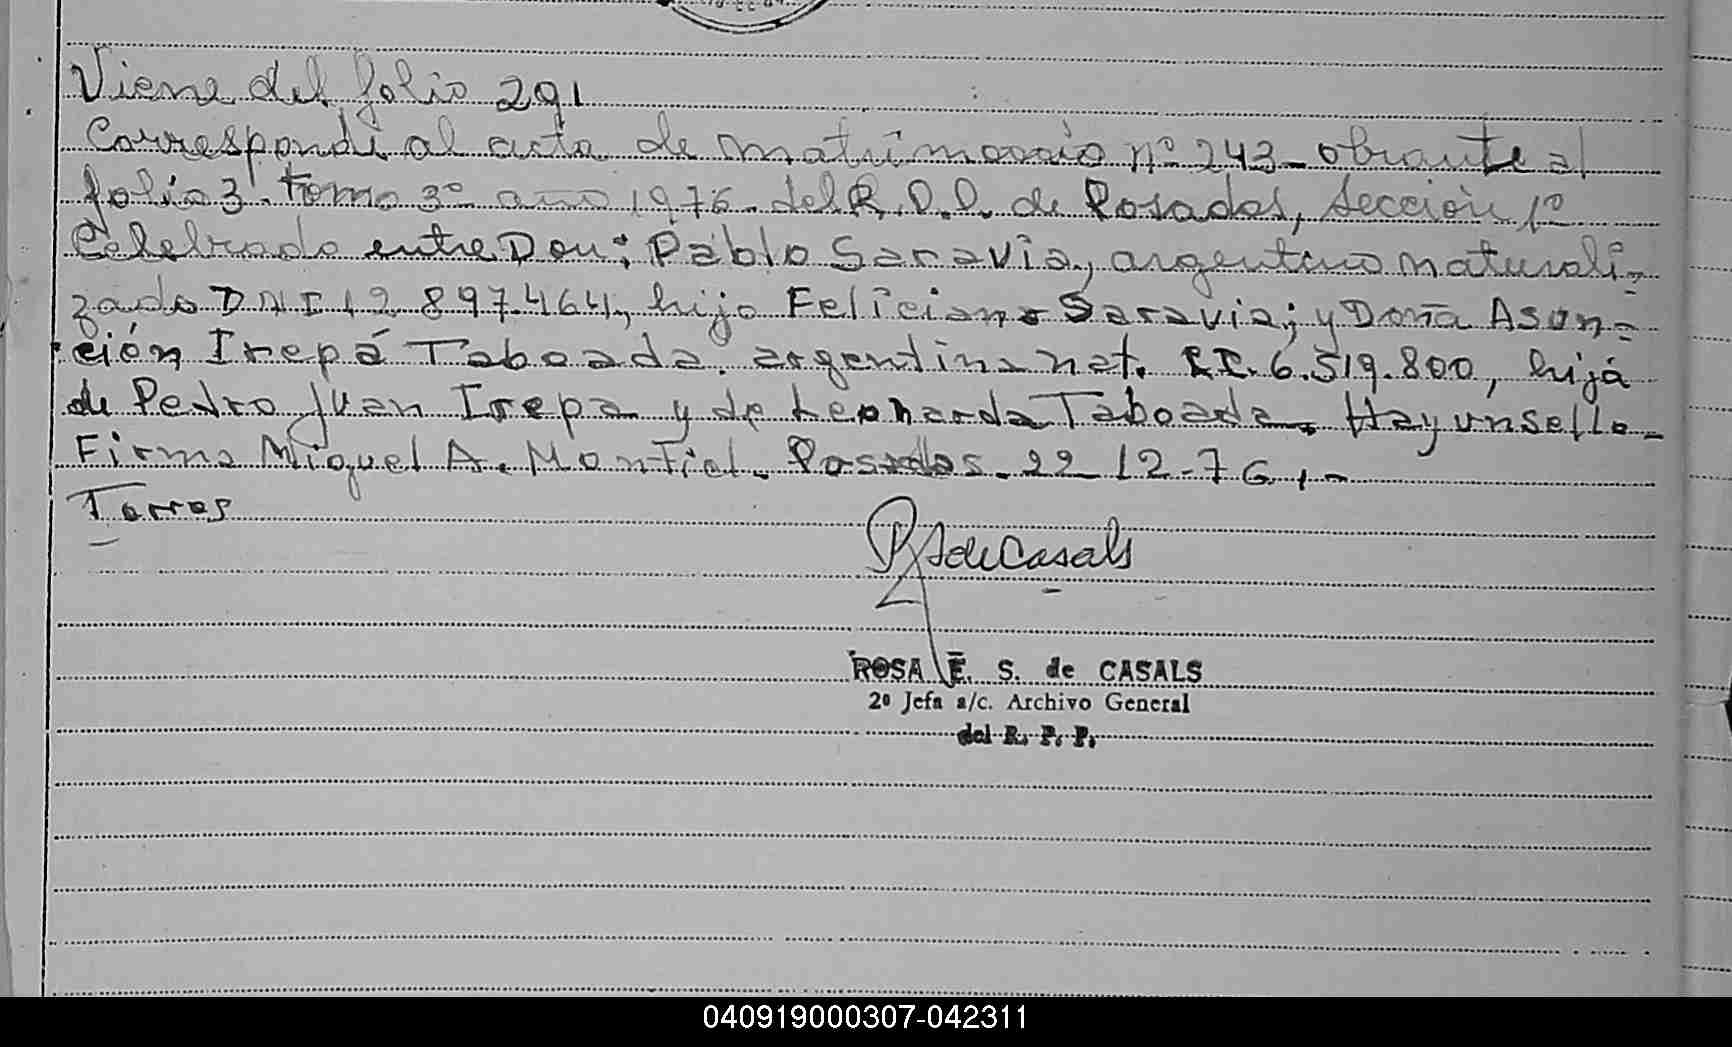 Viene del folio 291
Correspondi al acta de matrimonio nº 243 - obrante al
folio 3. tomo 3º año 1976. del R.P.P. de Posadas, Sección 1º
Celebrado entre Don: Pablo Saravia, argentino naturali-
zado DNI 12.897.464, hijo Feliciano Saravia; y Doña Asun=
ción Irepá Taboada. argentina nat. 6.519.800, hija
de Pedro Juan Irepa y de Leonarda Taboada. Hay un sello-
Firma Miguel A. Montiel. Posadas. 22-12-76.-
Torres
RSdeCasals
ROSA E. S. de CASALS
2º Jefa a/c. Archivo General
del R. P. P.
040919000307-042311